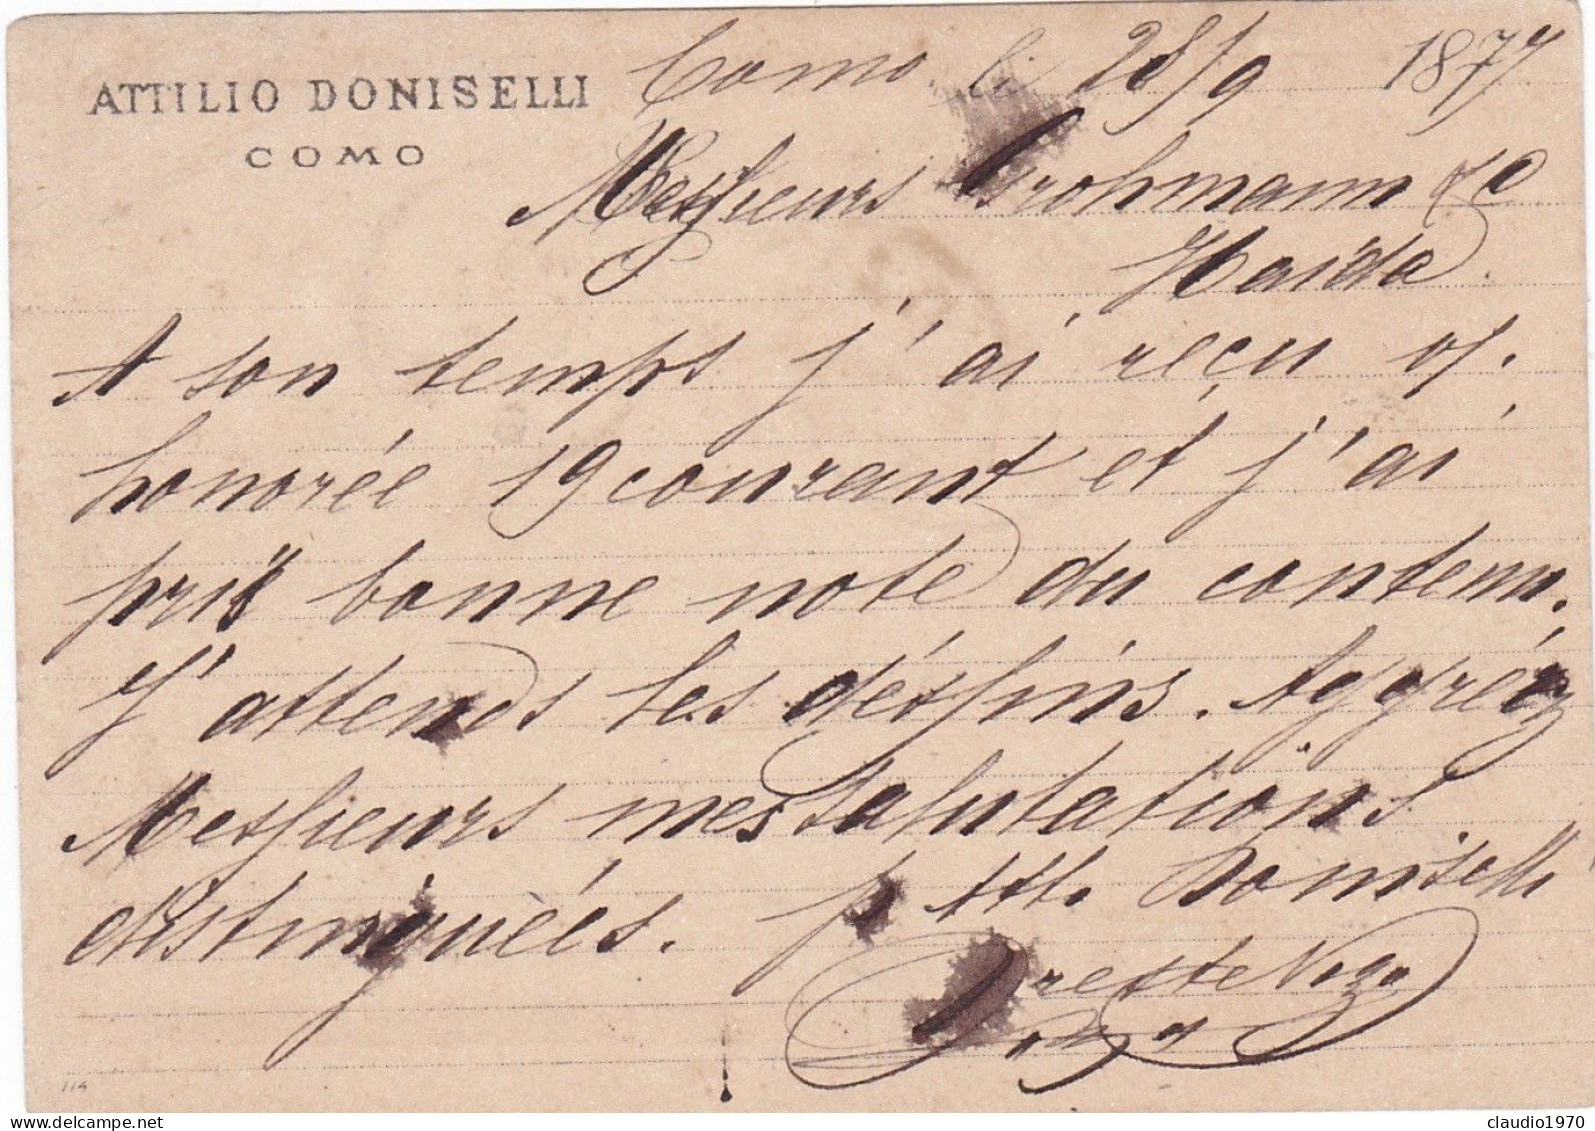 ATTILIO DONISELLI
COMO
Como li 28/9 1877
Messieurs Grohmann & C
Haida.
A son temps j'ai reçu v/.
honorée 19 courant et j'ai
pris bonne note du contenu.
J'attends les dessins. Aggréez
Messieurs mes salutations
distinguées. p Att. Doniselli
Oreste
114
claudio1970